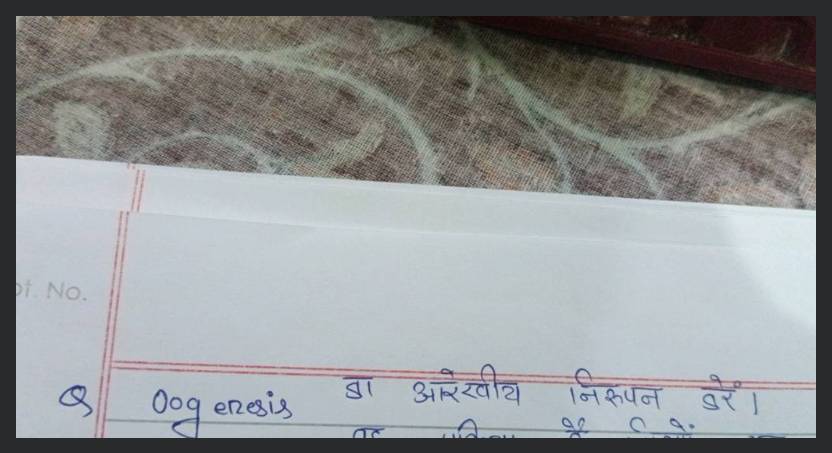 pt. No.
Q Oogenesis का आरेखीय निरूपण करें।